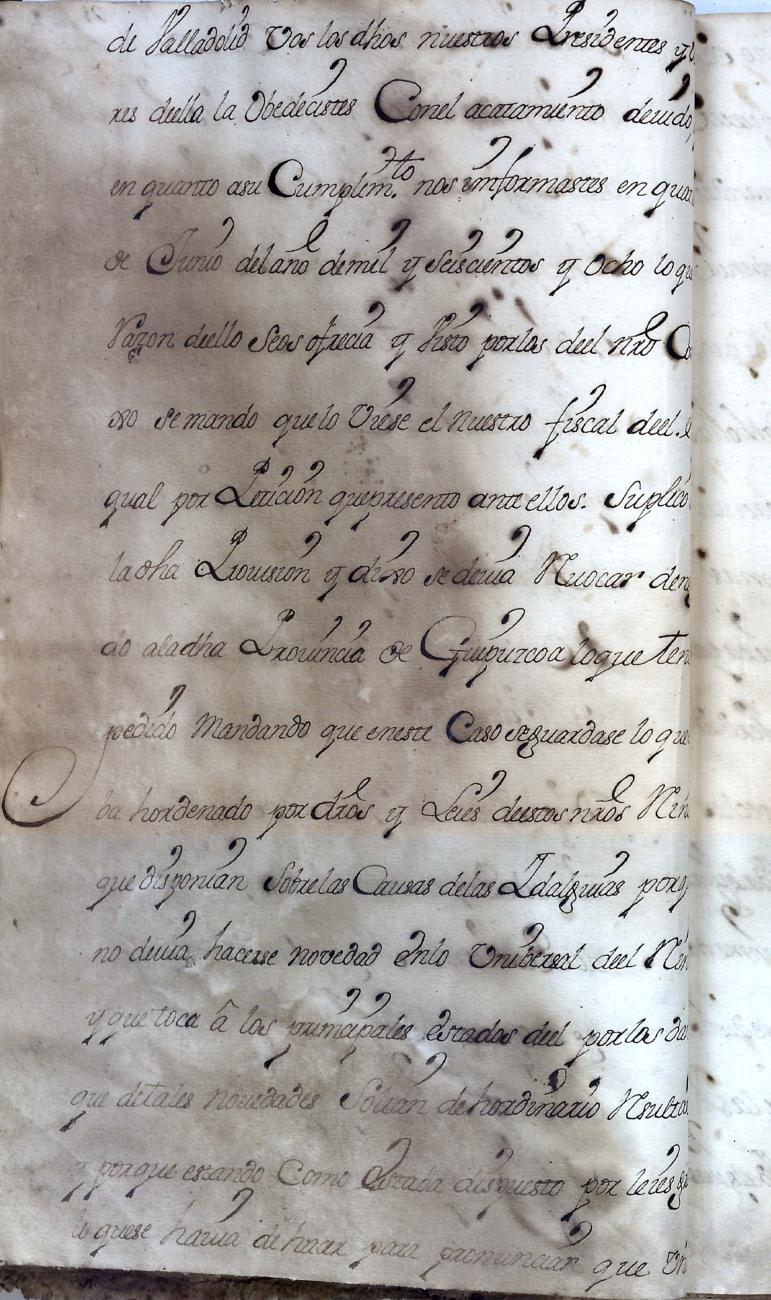 de Valladolid Vos los dhos nuestros Presidentes y
res deella la Obedecistes Conel acatamiento devido
en quanto asu Cumplim.to nos imformastes en
de Junio del año demil y seiscientos y ocho lo que
Razon deello Seos ofrecia y Visto porlos deel nrõ
xo se mando que lo Viese el Nuestro fiscal deel. el
qual por Peticion quepresento ante ellos. Suplicó
la dha Provision y dixo se devia Revocar
do aladha Provincia de Guipuzcoa loque
pedido Mandando que eneste Caso seguardase lo que
ba hordenado por drõs y Leies deestos nrõs
que disponian Sobrelas Causas delas Idalguias
no devia hacerse novedad enlo Vnibersal deel
y que toca â los primcipales estados deel por los
que detales novedades Solian de hordinario
y porque estando Como estaba dispuesto por leies
lo quese havia de hacer para pronunciar que